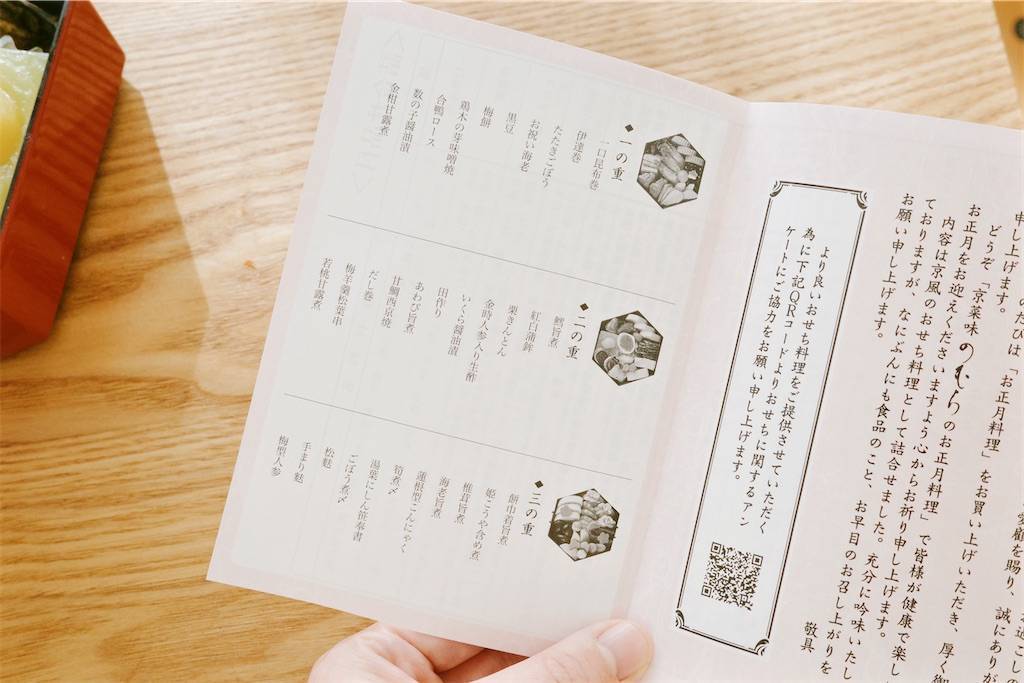 愛顧を賜り、誠にありが
のたびは「お正月料理」をお買い上げいただき、厚く御
申し上げます。
どうぞ「京菜味のむらのお正月料理」で皆様が健康で楽し
お正月をお迎えくださいますよう心からお祈り申し上げます。
内容は京風のおせち料理として詰合せました。充分に吟味いたし
ておりますが、なにぶんにも食品のこと、お早目のお召し上がりを
お願い申し上げます。
敬具
より良いおせち料理をご提供させていただく
為に下記QRコードよりおせちに関するアン
ケートにご協力をお願い申し上げます。
◆一の重
一口昆布巻
伊達巻
たたきごぼう
お祝い海老
黒豆
梅餅
鶏木の芽味噌焼
合鴨ロース
数の子醤油漬
金柑甘露煮
◆二の重
鱈旨煮
紅白蒲鉾
栗きんとん
金時人参入り生酢
いくら醤油漬
田作り
あわび旨煮
甘鯛西京焼
だし巻
梅羊羹松葉串
若桃甘露煮
◆三の重
餅巾着旨煮
姫こうや含め煮
椎茸旨煮
海老旨煮
蓮根型こんにゃく
筍煮〆
湯葉にしん笹奉書
ごぼう煮〆
松麩
手まり麩
梅型人参